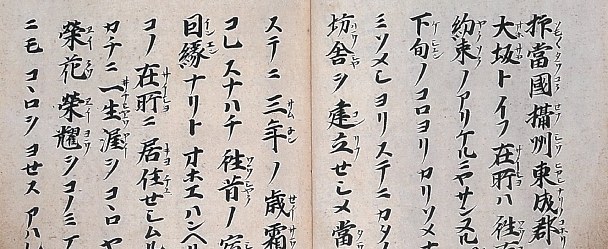 抑當國攝州東成郡
大坂トイフ在所ハ往
約束ノアリケルニヤサンヌル
下旬ノコロヨリカリソメ
ミソメシヨリステニカタノ
坊舎ヲ建立セシメ當
ステニ三年ノ歳霜
コレスナハチ往昔ノ宿
因縁ナリトオホエハンヘリ
コノ在所ニ居住セシムル
カチニ一生涯ヲコヽロヤ
榮花榮耀ヲコノミ
ニモコヽロヲヨセスアハレ